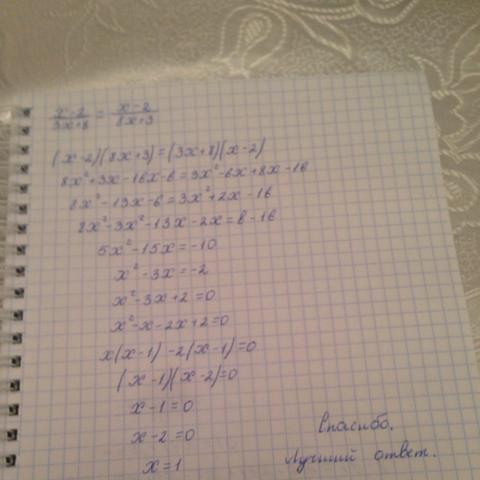 x-2/3x+8 = x-2/8x+3
(x-2)(8x+3)=(3x+8)(x-2)
8x²+3x-16x-6=3x²-6x+8x-16
8x²-13x-6=3x²+2x-16
8x²-3x²-13x-2x=6-16
5x²-15x=-10
x²-3x=-2
x²-3x+2=0
x²-x-2x+2=0
x(x-1)-2(x-1)=0
(x-1)(x-2)=0
x-1=0
x-2=0
x=1
Спасибо.
Лучший ответ.